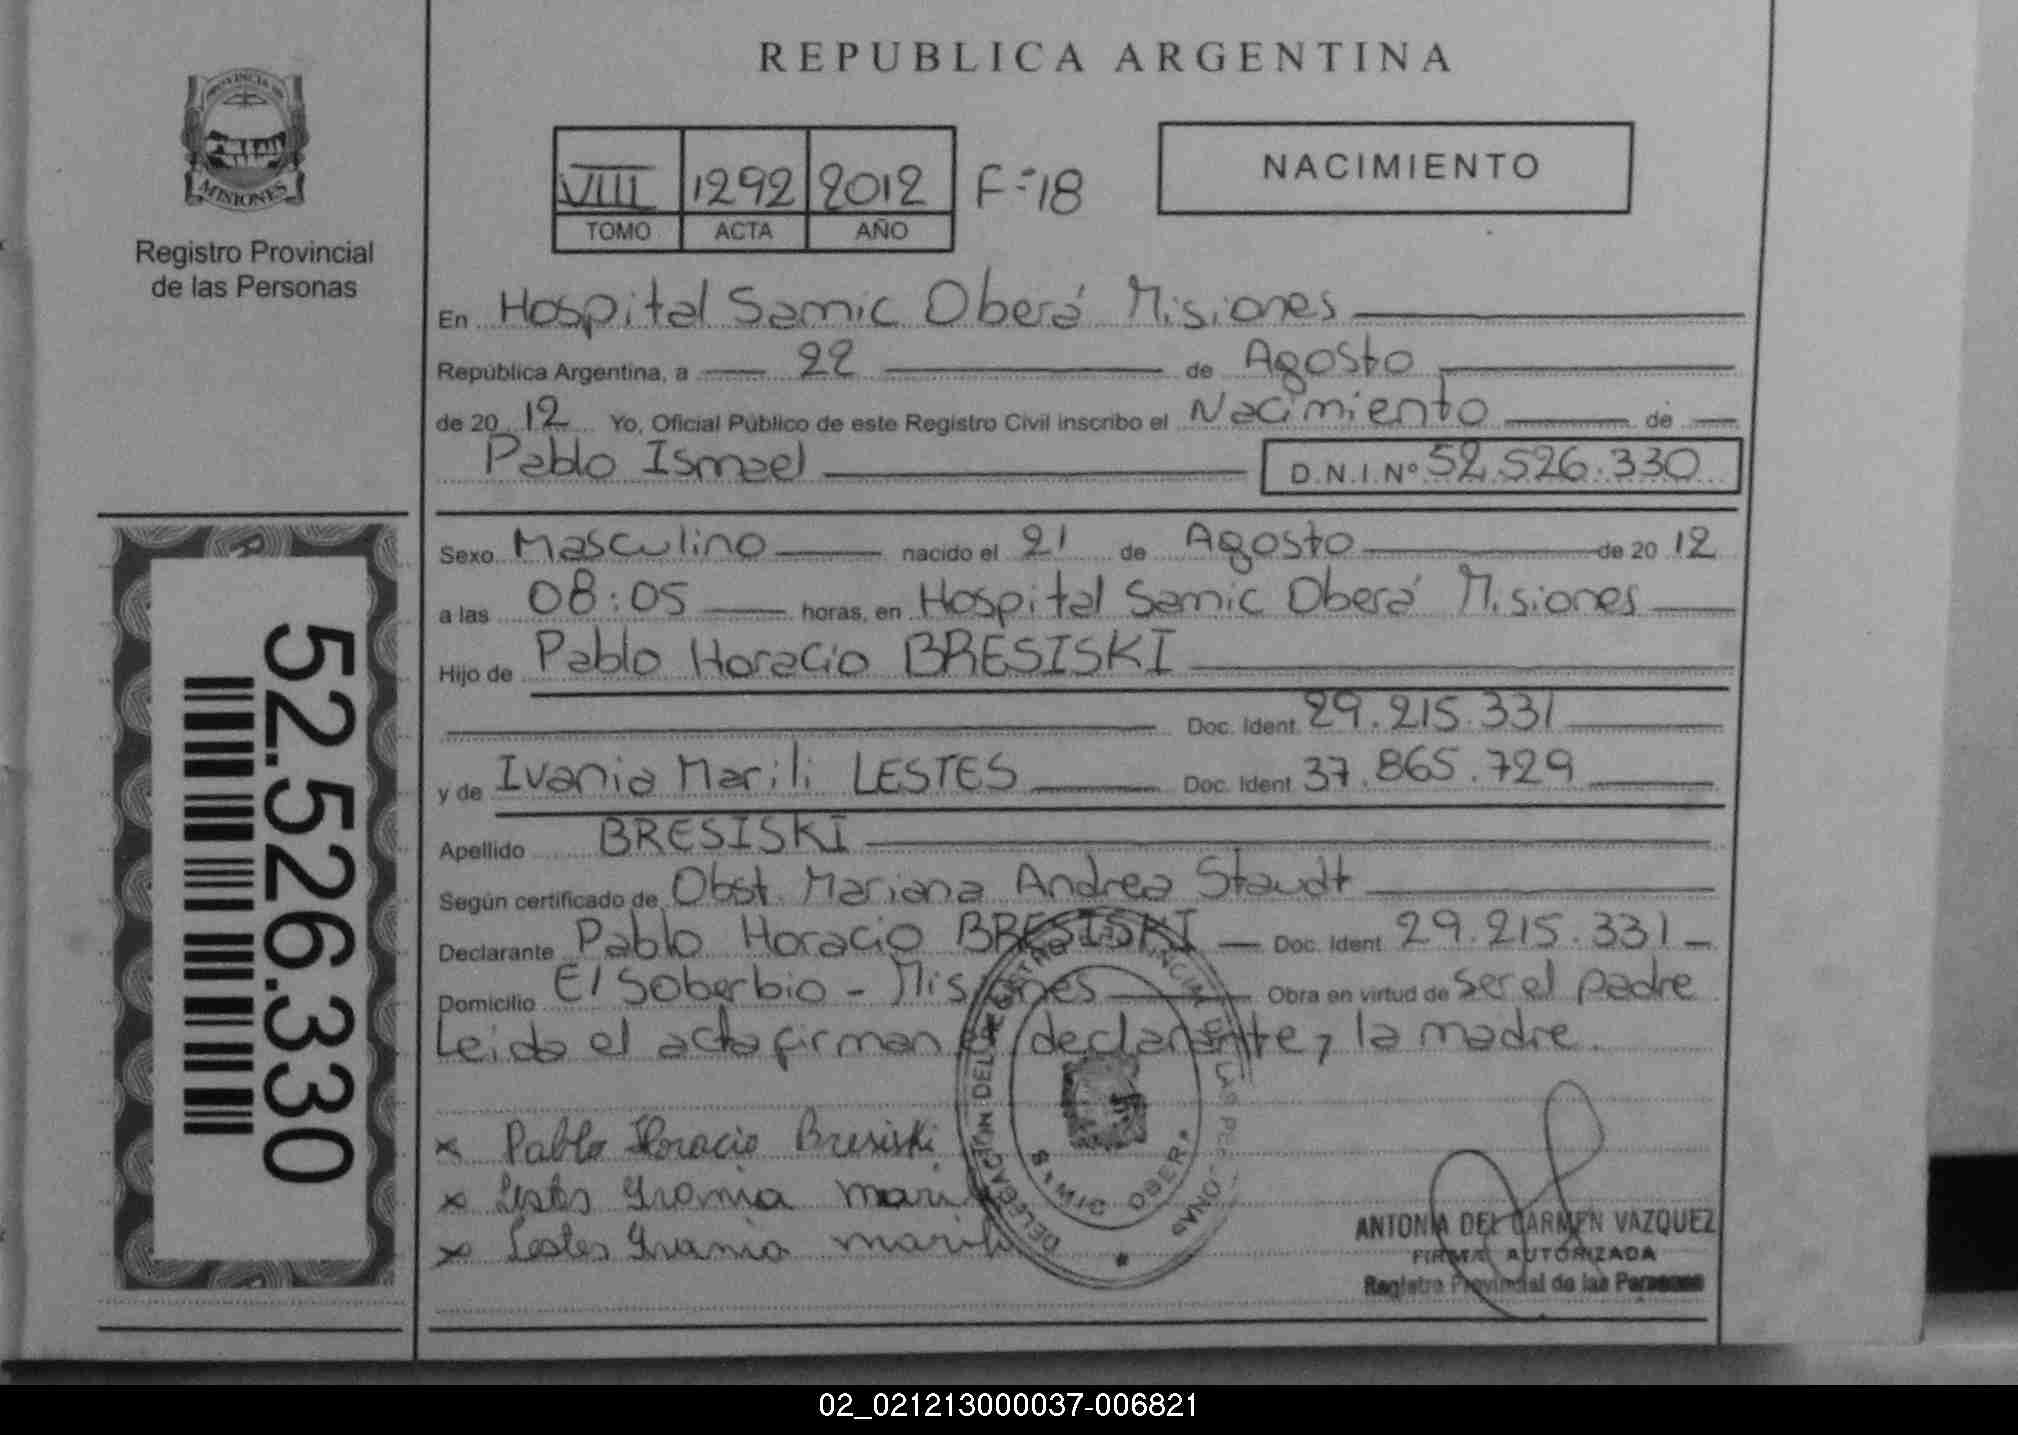 REPUBLICA ARGENTINA
PROVINCIA DE
MISIONES
Registro Provincial
de las Personas
VIII 1292 2012 F=18
TOMO ACTA AÑO
NACIMIENTO
En Hospital Samic Oberá Misiones
República Argentina, a 22 de Agosto
de 20 12 Yo, Oficial Público de este Registro Civil inscribo el Nacimiento de
Pablo Ismael D.N.I.Nº 52.526.330
Sexo Masculino nacido el 21 de Agosto de 20 12
a las 08:05 horas, en Hospital Samic Oberá Misiones
Hijo de Pablo Horacio BRESISKI
Doc. Ident. 29.215.331
y de Ivania Marili LESTES Doc. Ident 37.865.729
Apellido BRESISKI
Según certificado de Obst. Mariana Andrea Staudt
Declarante Pablo Horacio BRESISKI Doc. Ident. 29.215.331
Domicilio El Soberbio - Misiones Obra en virtud de ser el padre
Leida el acta firman el declarante y la madre.
x Pablo Horacio Bresiski
x Lestes Ivania mari
x Lestes Ivania marili
DELEGACION DEL REGISTRO PROVINCIAL DE LAS PERSONAS
SAMIC OBERA
ANTONIA DEL CARMEN VAZQUEZ
FIRMA AUTORIZADA
Registro Provincial de las Personas
52.526.330
02_021213000037-006821